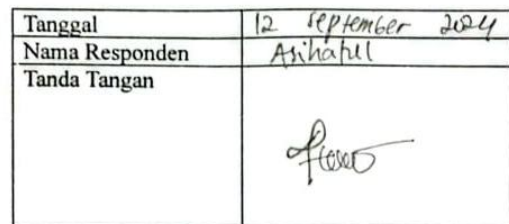 Tanggal 12 September 2024
Nama Responden Asihatul
Tanda Tangan